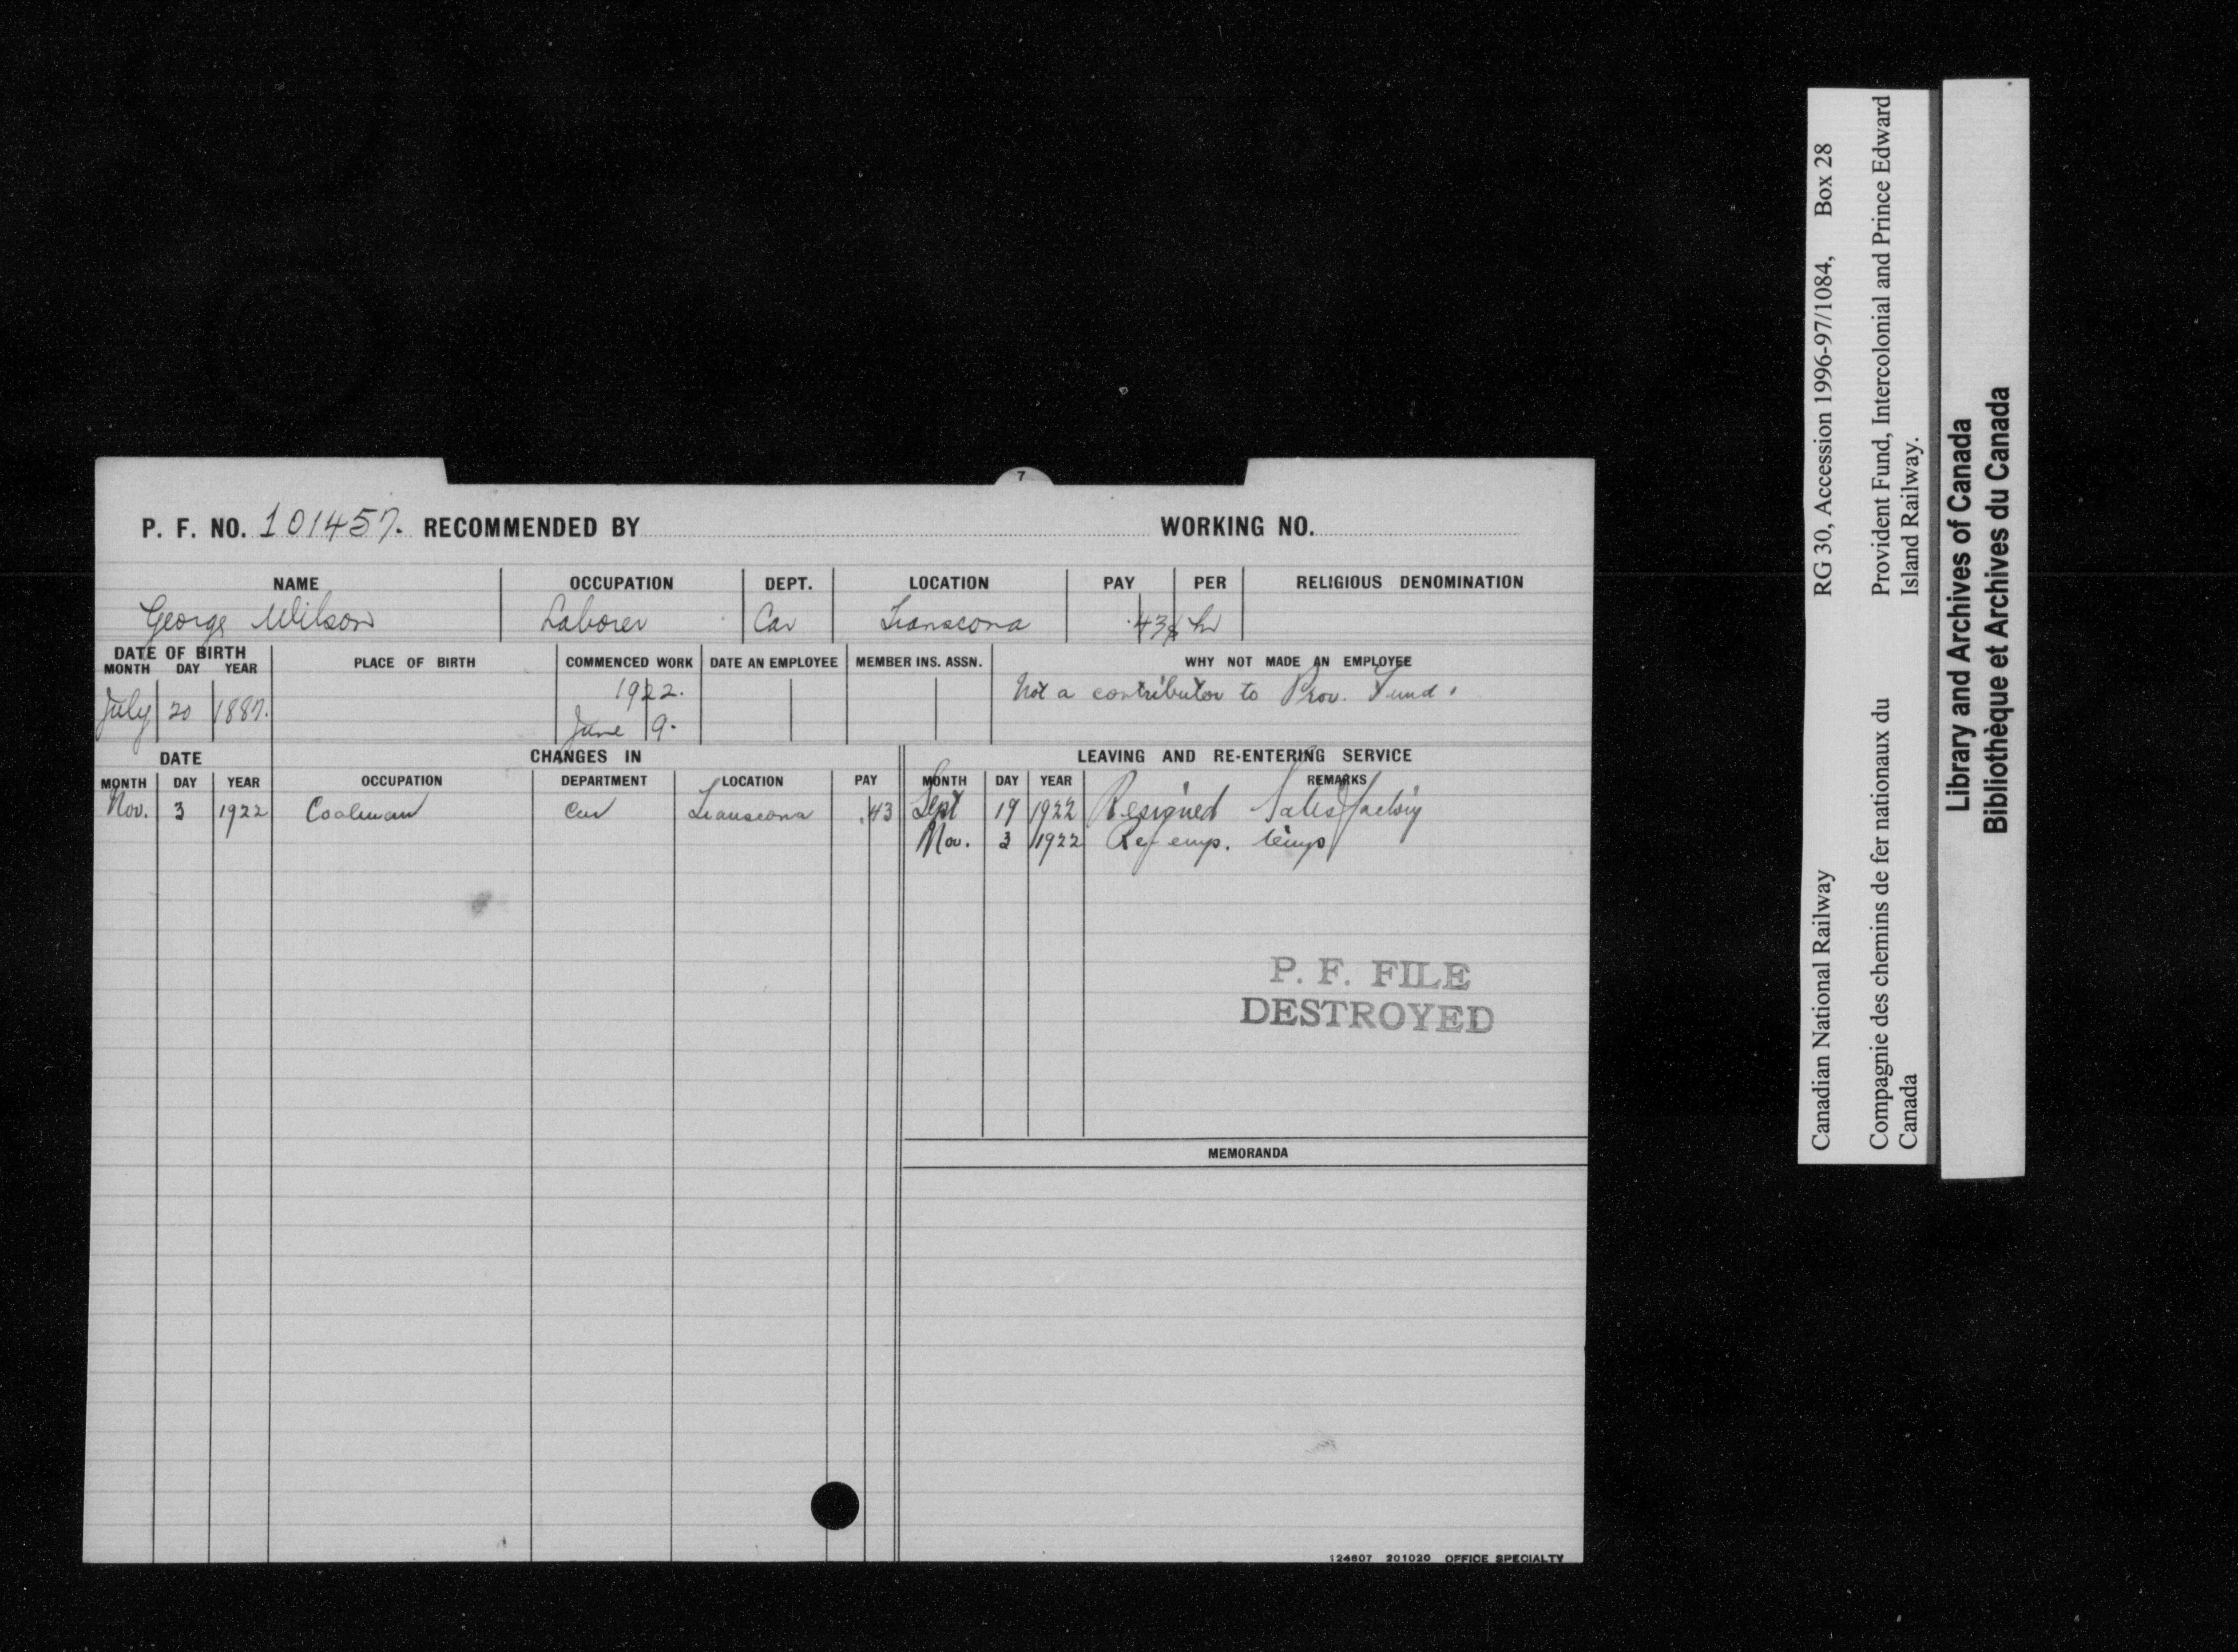 7
P. F. NO. 101457. RECOMMENDED BY WORKING NO.
NAME OCCUPATION DEPT. LOCATION PAY PER RELIGIOUS DENOMINATION
George Wilson Laborer Car Transcona .43¢ hr
DATE OF BIRTH
MONTH DAY YEAR PLACE OF BIRTH COMMENCED WORK DATE AN EMPLOYEE MEMBER INS. ASSN. WHY NOT MADE AN EMPLOYEE
1922. Not a contributor to Prov. Fund.
July 20 1887. June 9.
DATE CHANGES IN LEAVING AND RE-ENTERING SERVICE
MONTH DAY YEAR OCCUPATION DEPARTMENT LOCATION PAY MONTH DAY YEAR REMARKS
Nov. 3 1922 Coalman Car Transcona .43 Sept 19 1922 Resigned Satisfactory
Nov. 3 1922 Re-emp. temp
P. F. FILE
DESTROYED
MEMORANDA
124607 201020 OFFICE SPECIALTY
Canadian National Railway RG 30, Accession 1996-97/1084, Box 28
Compagnie des chemins de fer nationaux du Provident Fund, Intercolonial and Prince Edward
Canada Island Railway.
Library and Archives of Canada
Bibliothèque et Archives du Canada